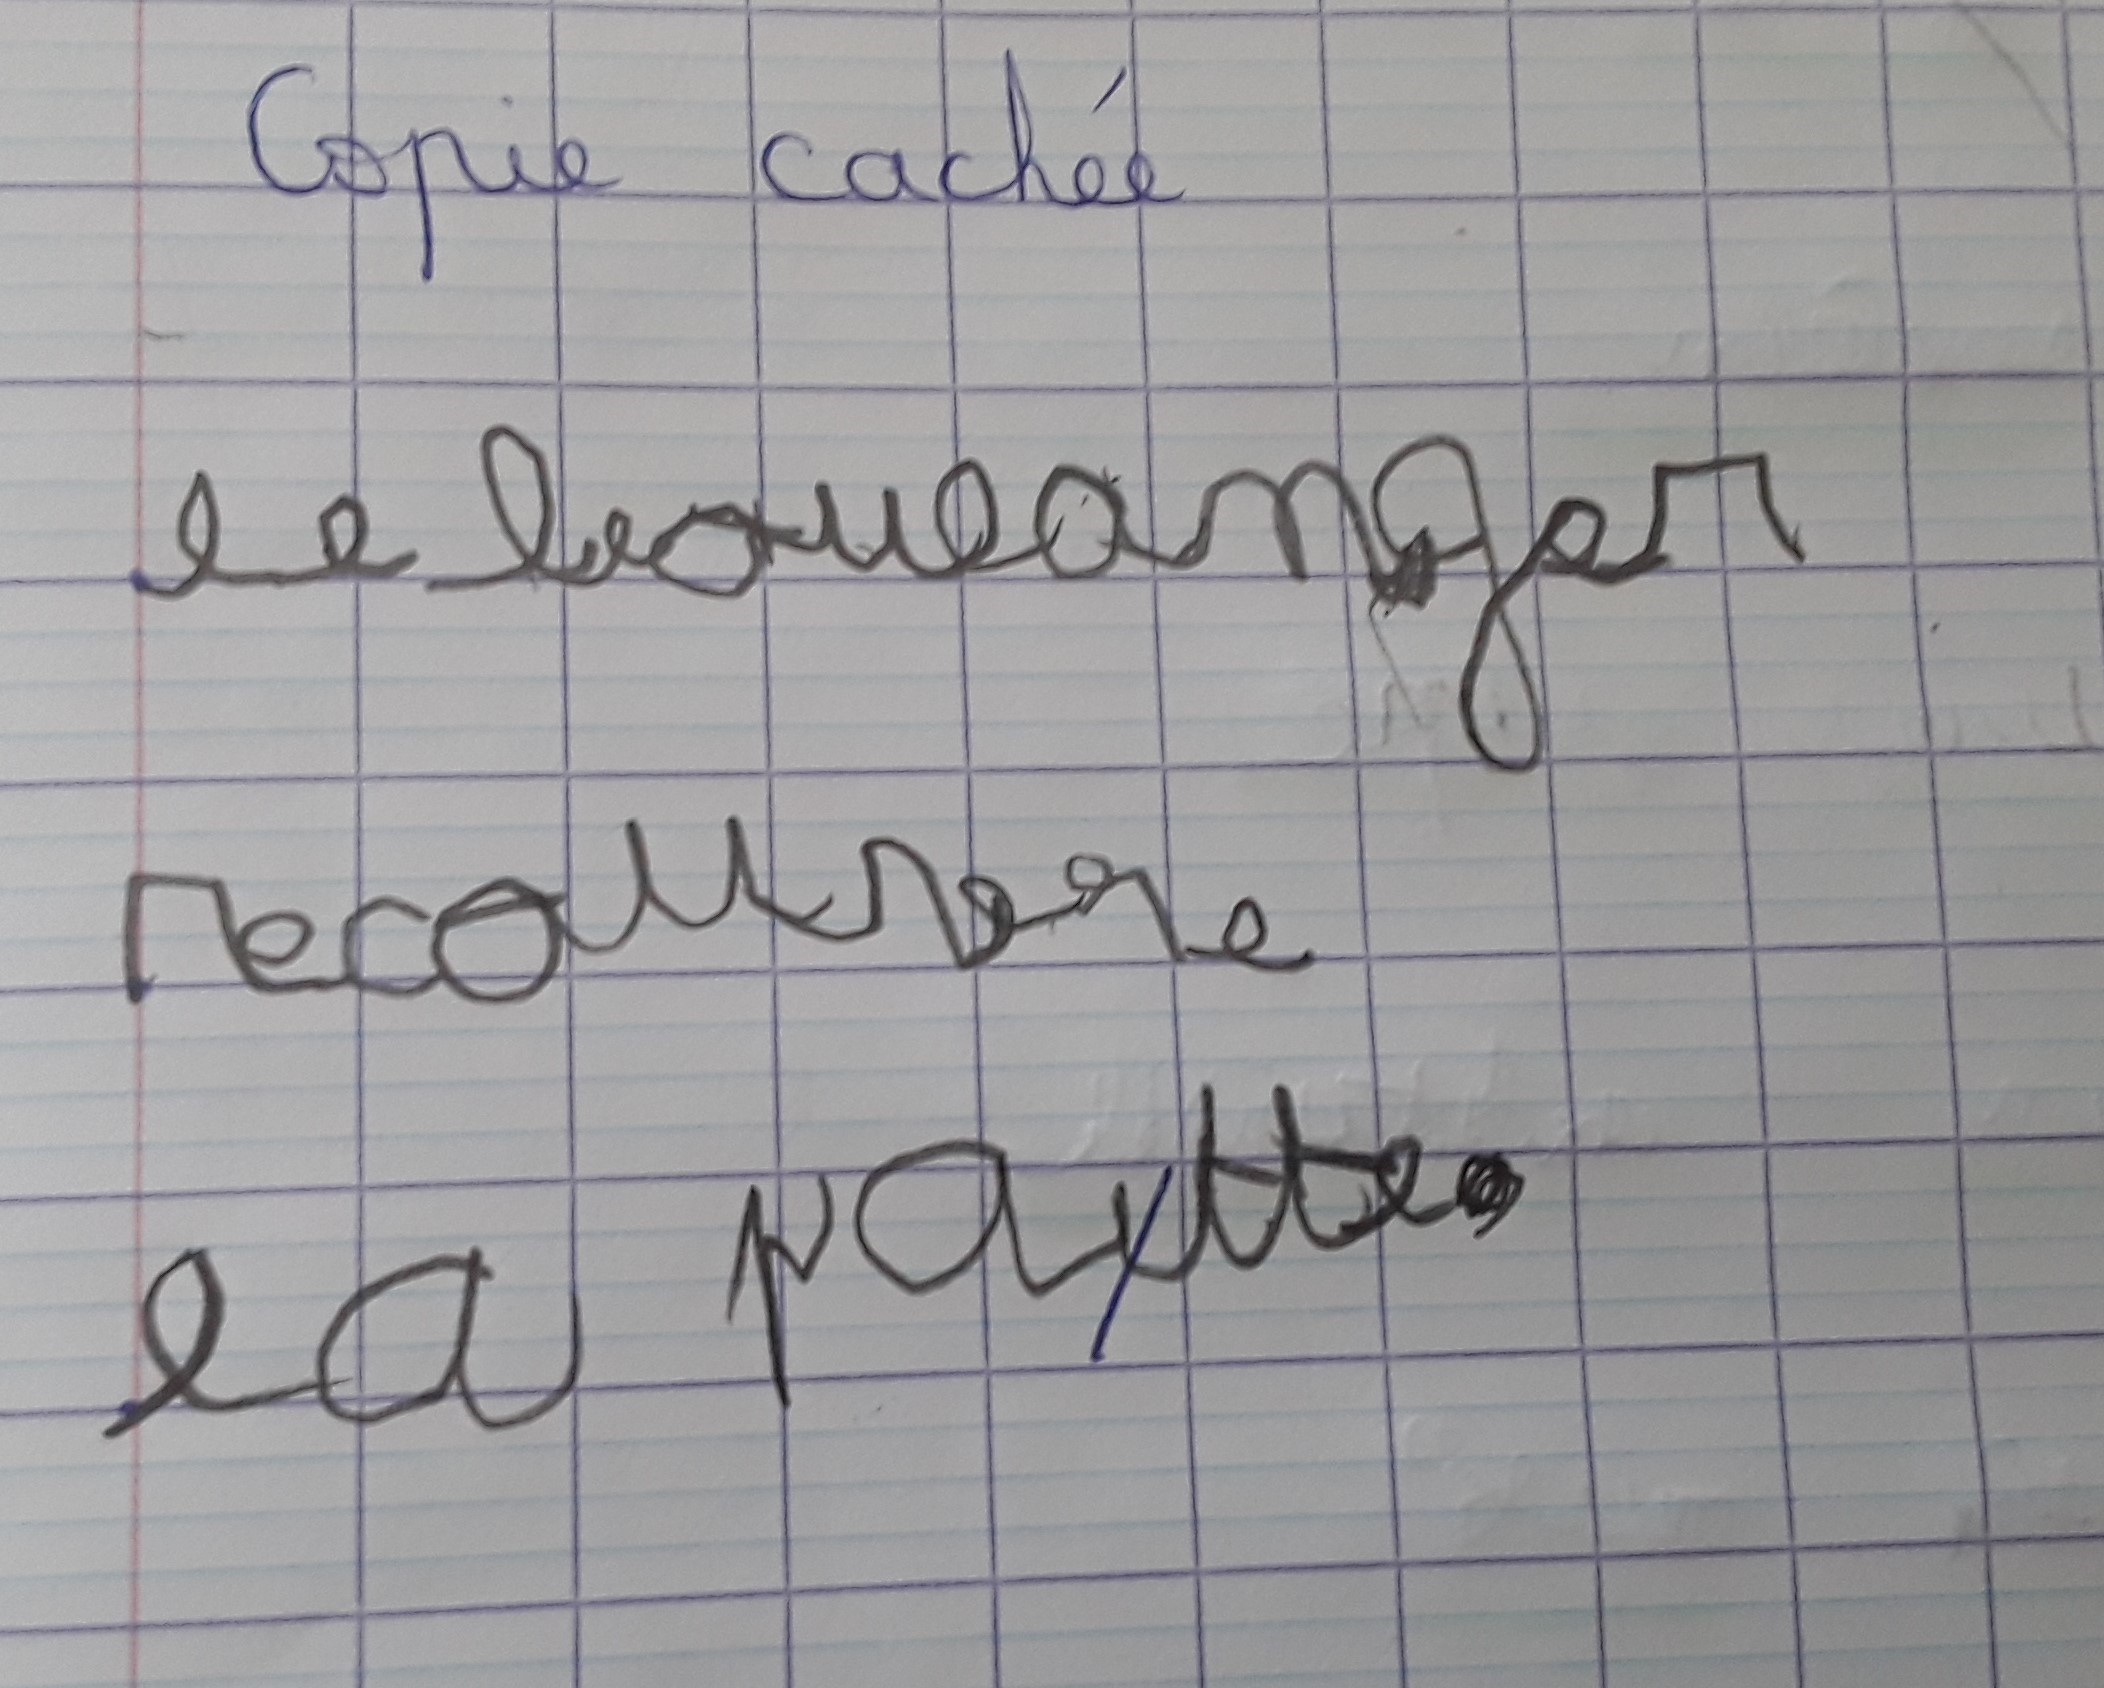 Copie cachée
le boulanger
recouvre
la patte.